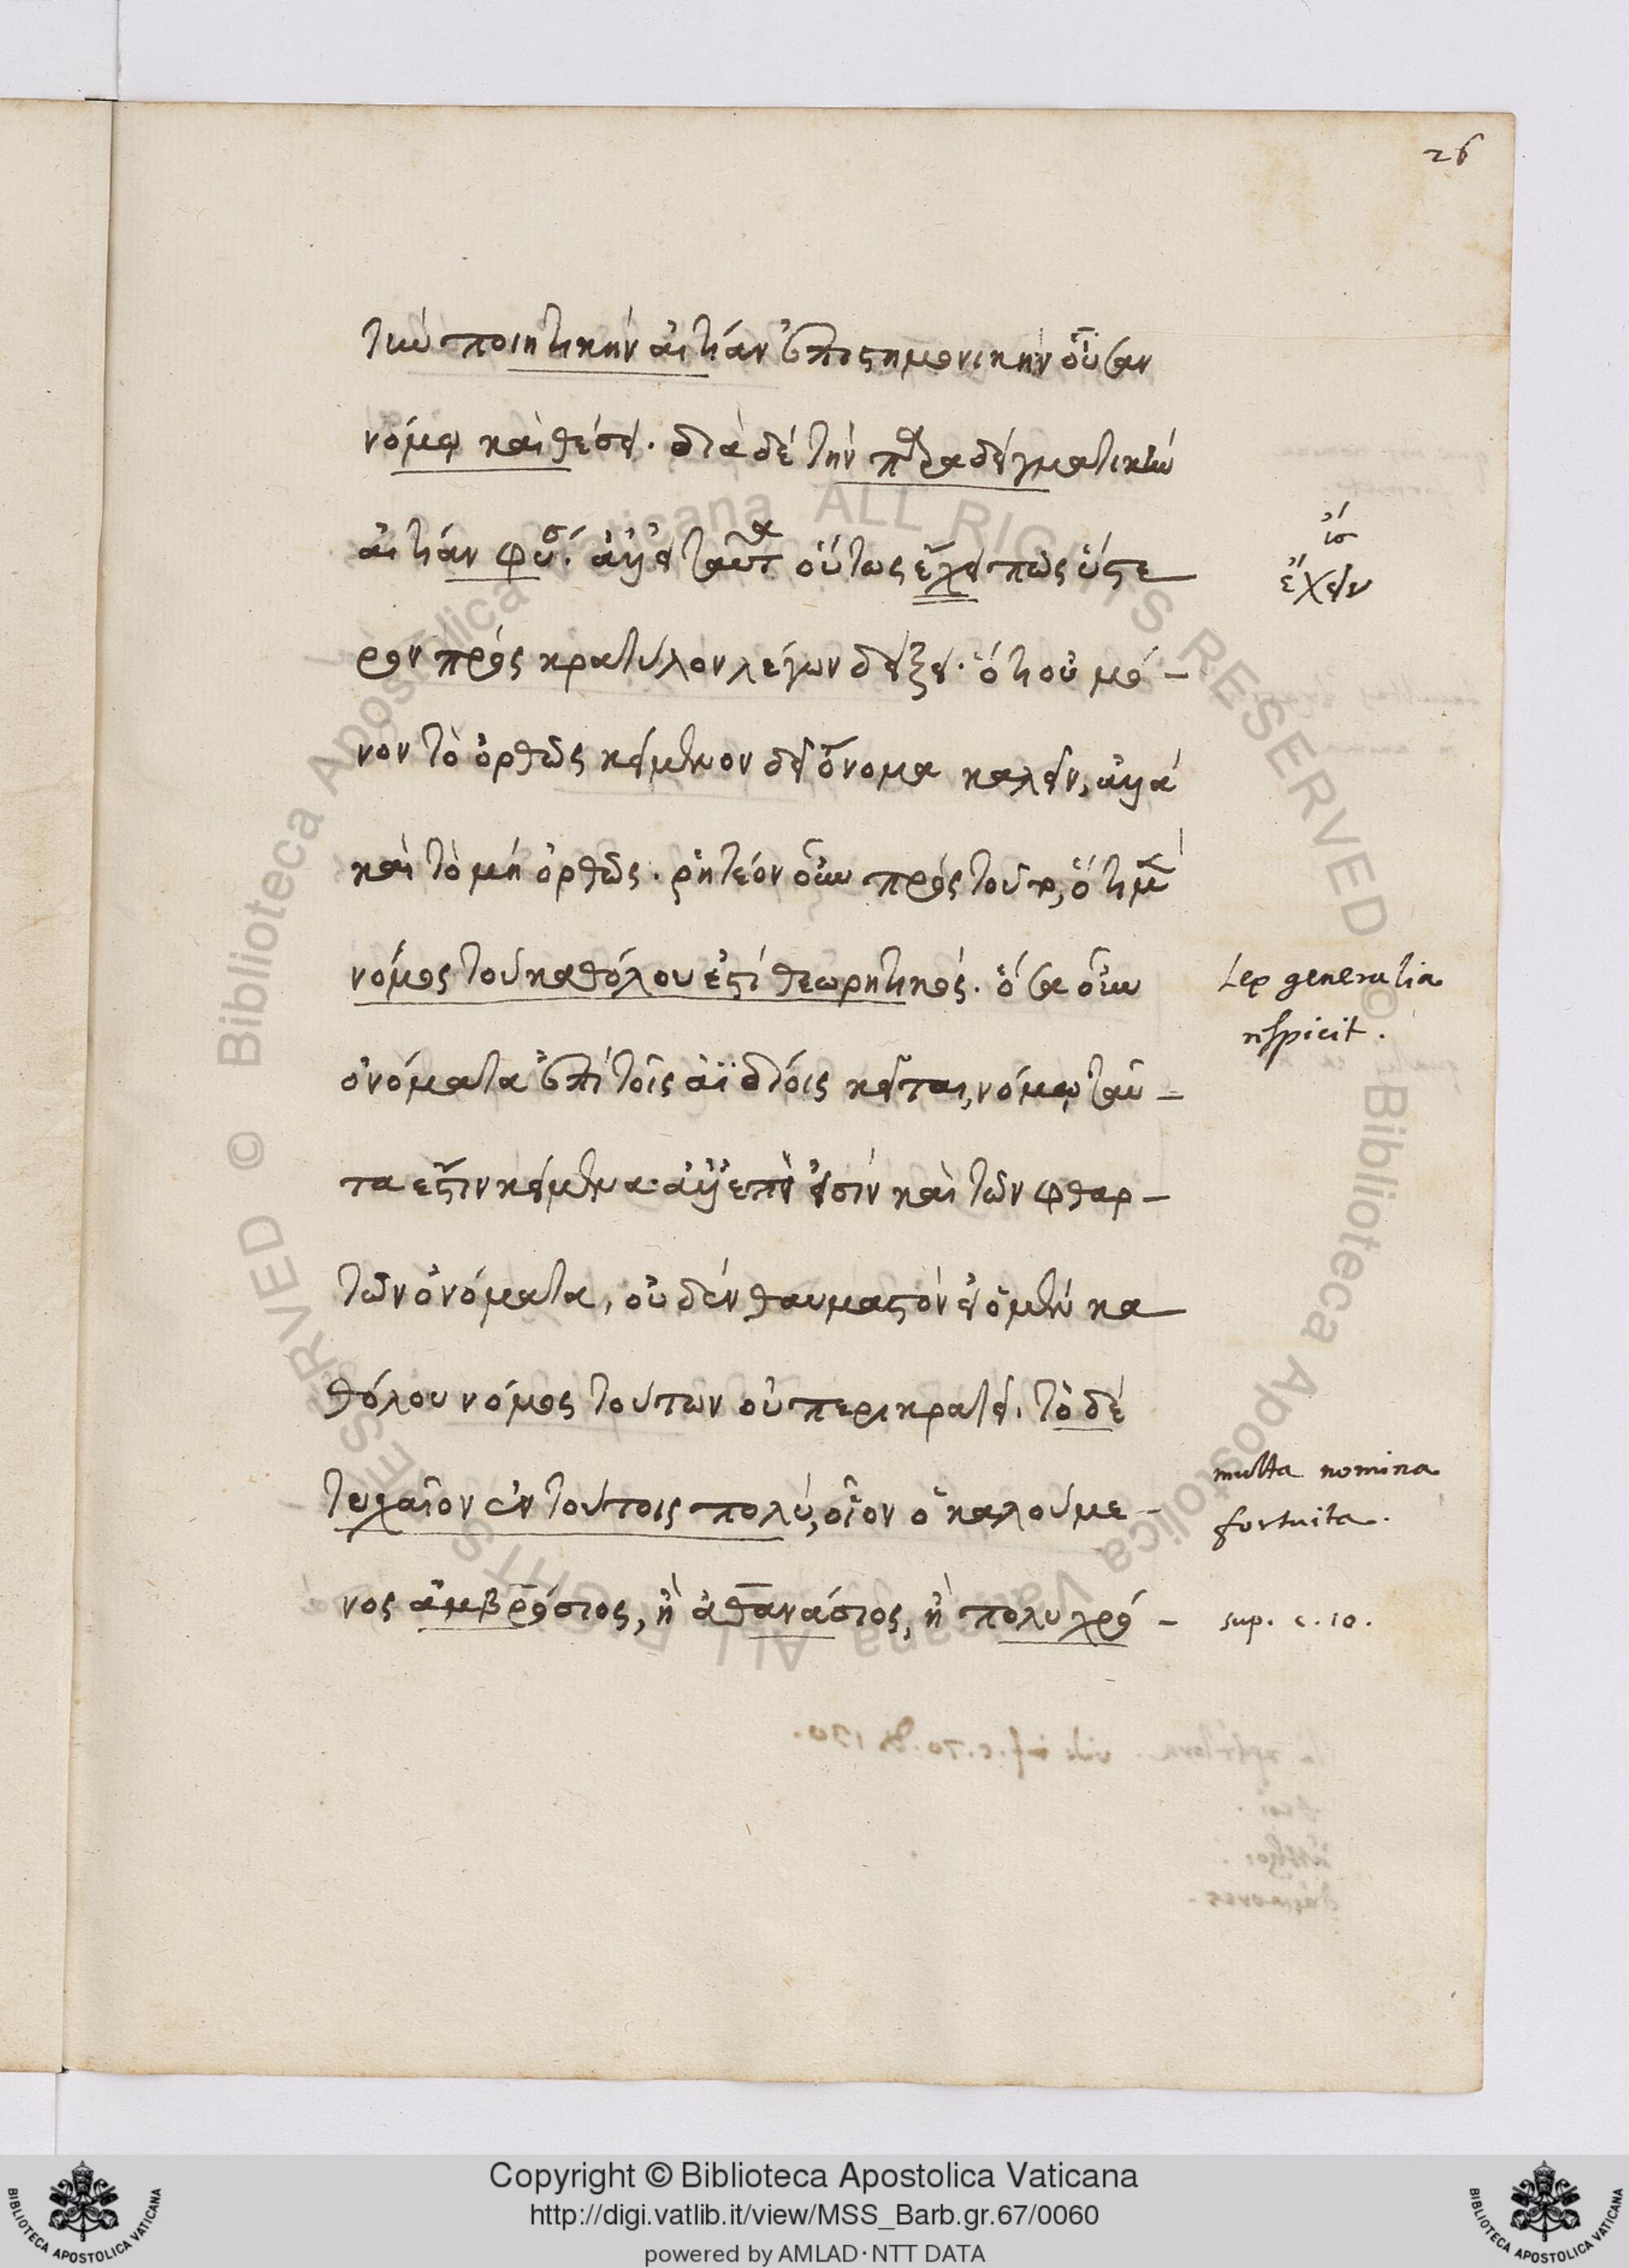 26
τὴν ποιητικὴν αἰτίαν ἐπιστημονικὴν οὖσαν
νόμῳ καὶ θέσει. διὰ δὲ τὴν παραδειγματικὴν
αἰτίαν φύσει. ἀλλ' εἰ ταῦτα οὕτως ἔχει πῶς ὕστε
ρον πρὸς κρατύλον λέγων δείξει. ὅτι οὐ μό-
νον τὸ ὀρθῶς κείμενον δεῖ ὄνομα καλεῖν, ἀλλὰ
καὶ τὸ μὴ ὀρθῶς. ῥητέον οὖν πρὸς τοῦτο, ὅτι μὲν
νόμος τοῦ καθόλου ἐστὶ θεωρητικός. ὅσα οὖν
ὀνόματα ἐπὶ τοῖς ἀϊδίοις κεῖται, νόμῳ ταῦ-
τα ἐστιν κείμενα. ἀλλ' ἐπεὶ εἰσὶν καὶ τῶν φθαρ-
τῶν ὀνόματα, οὐδὲν θαυμαστὸν εἰ ὁ μὲν κα
θόλου νόμος τούτων οὐ περικρατεῖ. τὸ δὲ
τυχαῖον ἐν τούτοις πολύ, οἷον ὁ καλούμε-
νος ἀμβρόσιος, ἢ ἀθανάσιος, ἢ πολυχρό-
ἴσ
ἔχειν
Lex generalia
respicit.
multa nomina
fortuita.
sup. c. 10.
Copyright © Biblioteca Apostolica Vaticana
http://digi.vatlib.it/view/MSS_Barb.gr.67/0060
powered by AMLAD·NTT DATA
BIBLIOTECA APOSTOLICA VATICANA
BIBLIOTECA APOSTOLICA VATICANA
© Biblioteca Apostolica Vaticana ALL RIGHTS RESERVED
© Biblioteca Apostolica Vaticana ALL RIGHTS RESERVED